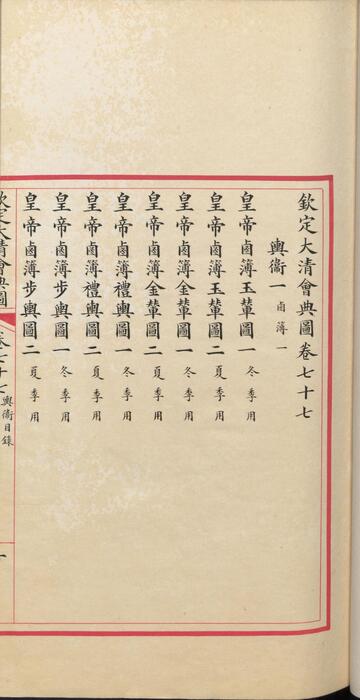 欽定大清會典圖卷七十七
輿衞一 鹵簿一
皇帝鹵簿玉輦圖一 冬季用
皇帝鹵簿玉輦圖二 夏季用
皇帝鹵簿金輦圖一 冬季用
皇帝鹵簿金輦圖二 夏季用
皇帝鹵簿禮輿圖一 冬季用
皇帝鹵簿禮輿圖二 夏季用
皇帝鹵簿步輿圖一 冬季用
皇帝鹵簿步輿圖二 夏季用
欽定大清會典圖 卷七十七 輿衞目錄 一